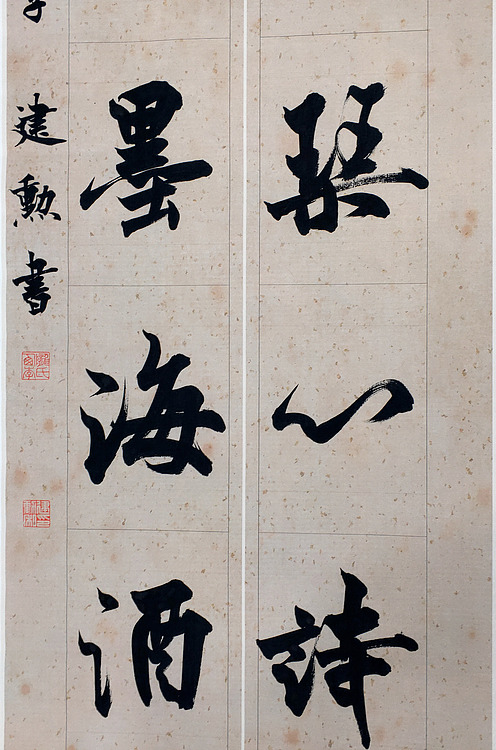 琹心詩
墨海酒
建勳書